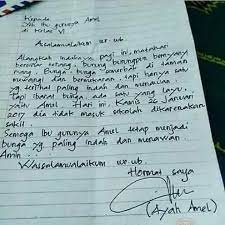 Kepada
Ibu Ibu gurunya Amel
di Kelas VI
Assalamualaikum wr. ub.
Alangkah indahnya pagi ini, matahari
bersinar terang, burung burungpun bernyanyi
riang. Bunga - bunga bermekaran di taman
mewangi dan berwarna, tapi hanya satu
yg terlihat paling indah dan menawan.
Tapi ibarat bunga ada satu yang layu,
yaitu Amel. Hari ini, Kamis 26 Januari
2017 dia tidak masuk sekolah dikarenakan
sakit.
Semoga Ibu gurunya Amel tetap menjadi
bunga yg. paling indah dan menawan
Amin...
Wassalamualaikum wr. ub.
Hormat saya
(Ayah Amel)